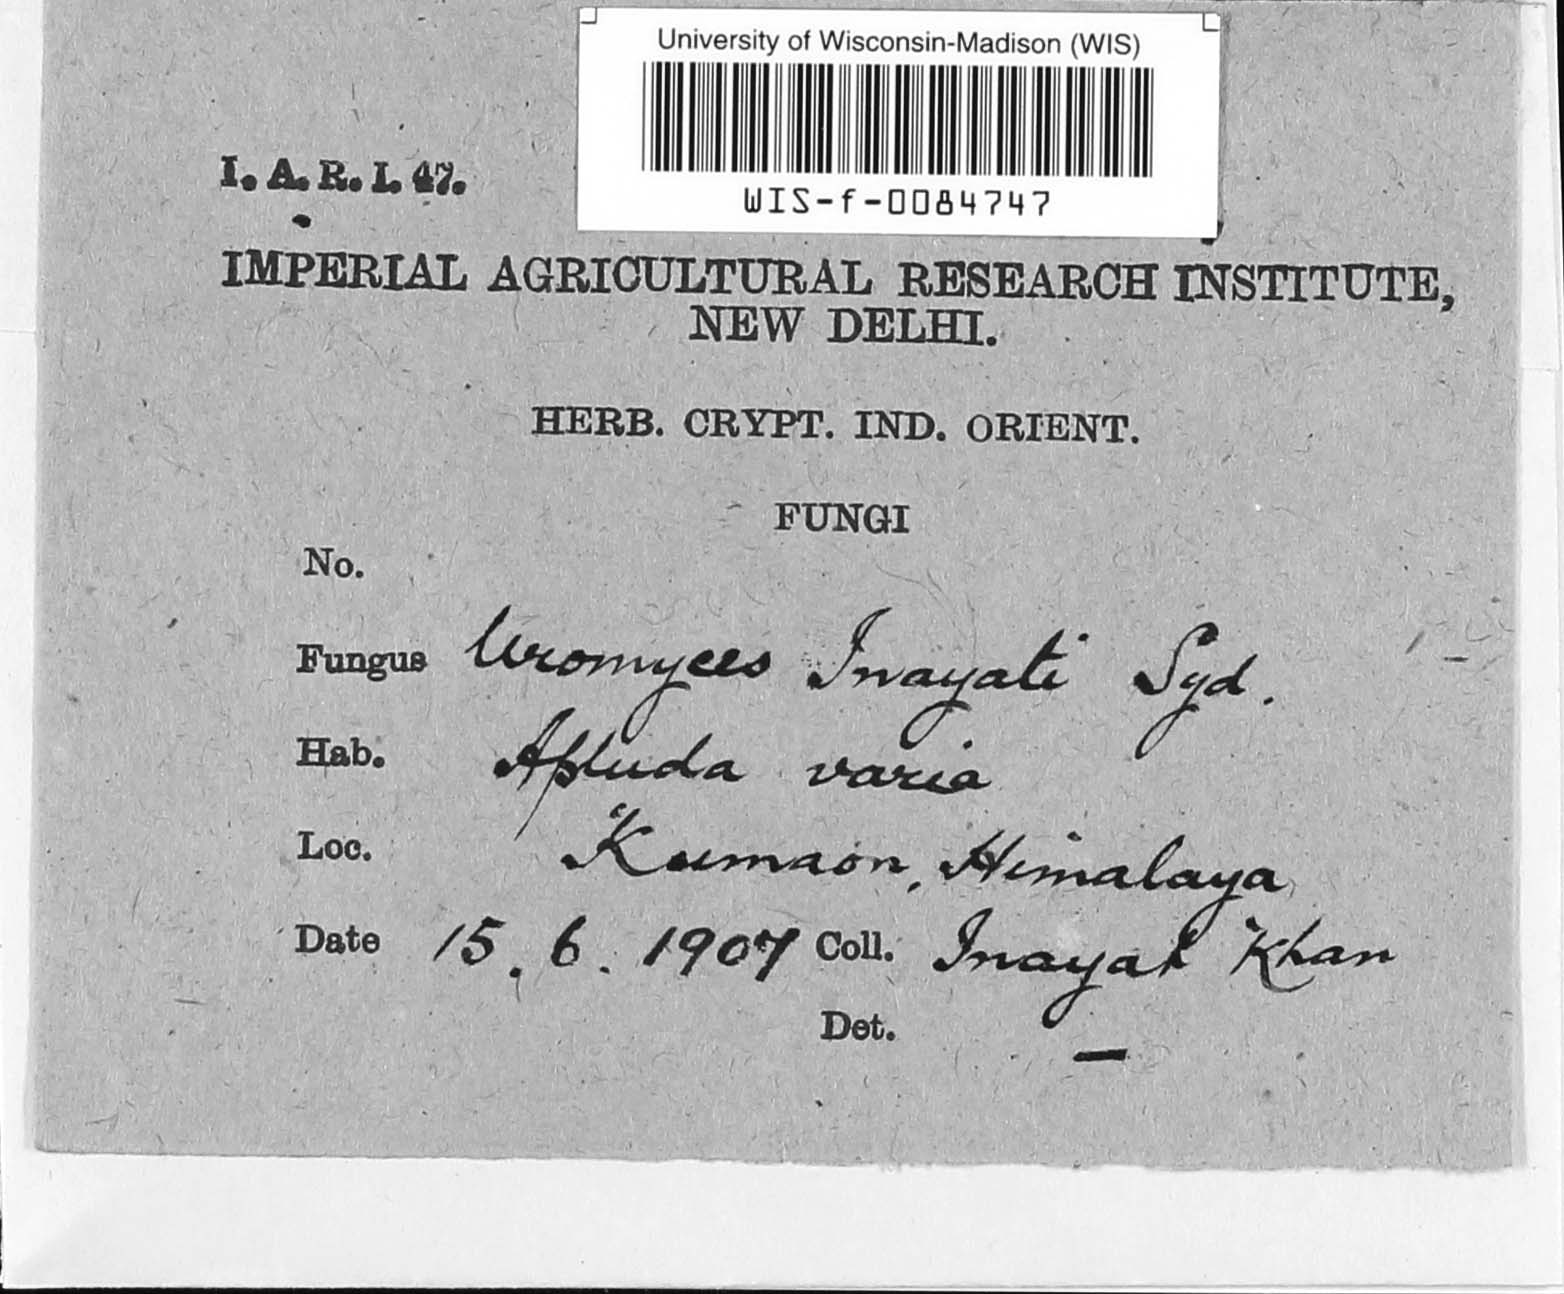 University of Wisconsin-Madison (WIS)
WIS-f-0084747
I. A. R. I. 47.
IMPERIAL AGRICULTURAL RESEARCH INSTITUTE,
NEW DELHI.
HERB. CRYPT. IND. ORIENT.
FUNGI
No.
Fungus Uromyces Inayati Syd.
Hab. Apluda varia
Loc. Kumaon, Himalaya
Date 15. 6. 1907 Coll. Inayat Khan
Det. —